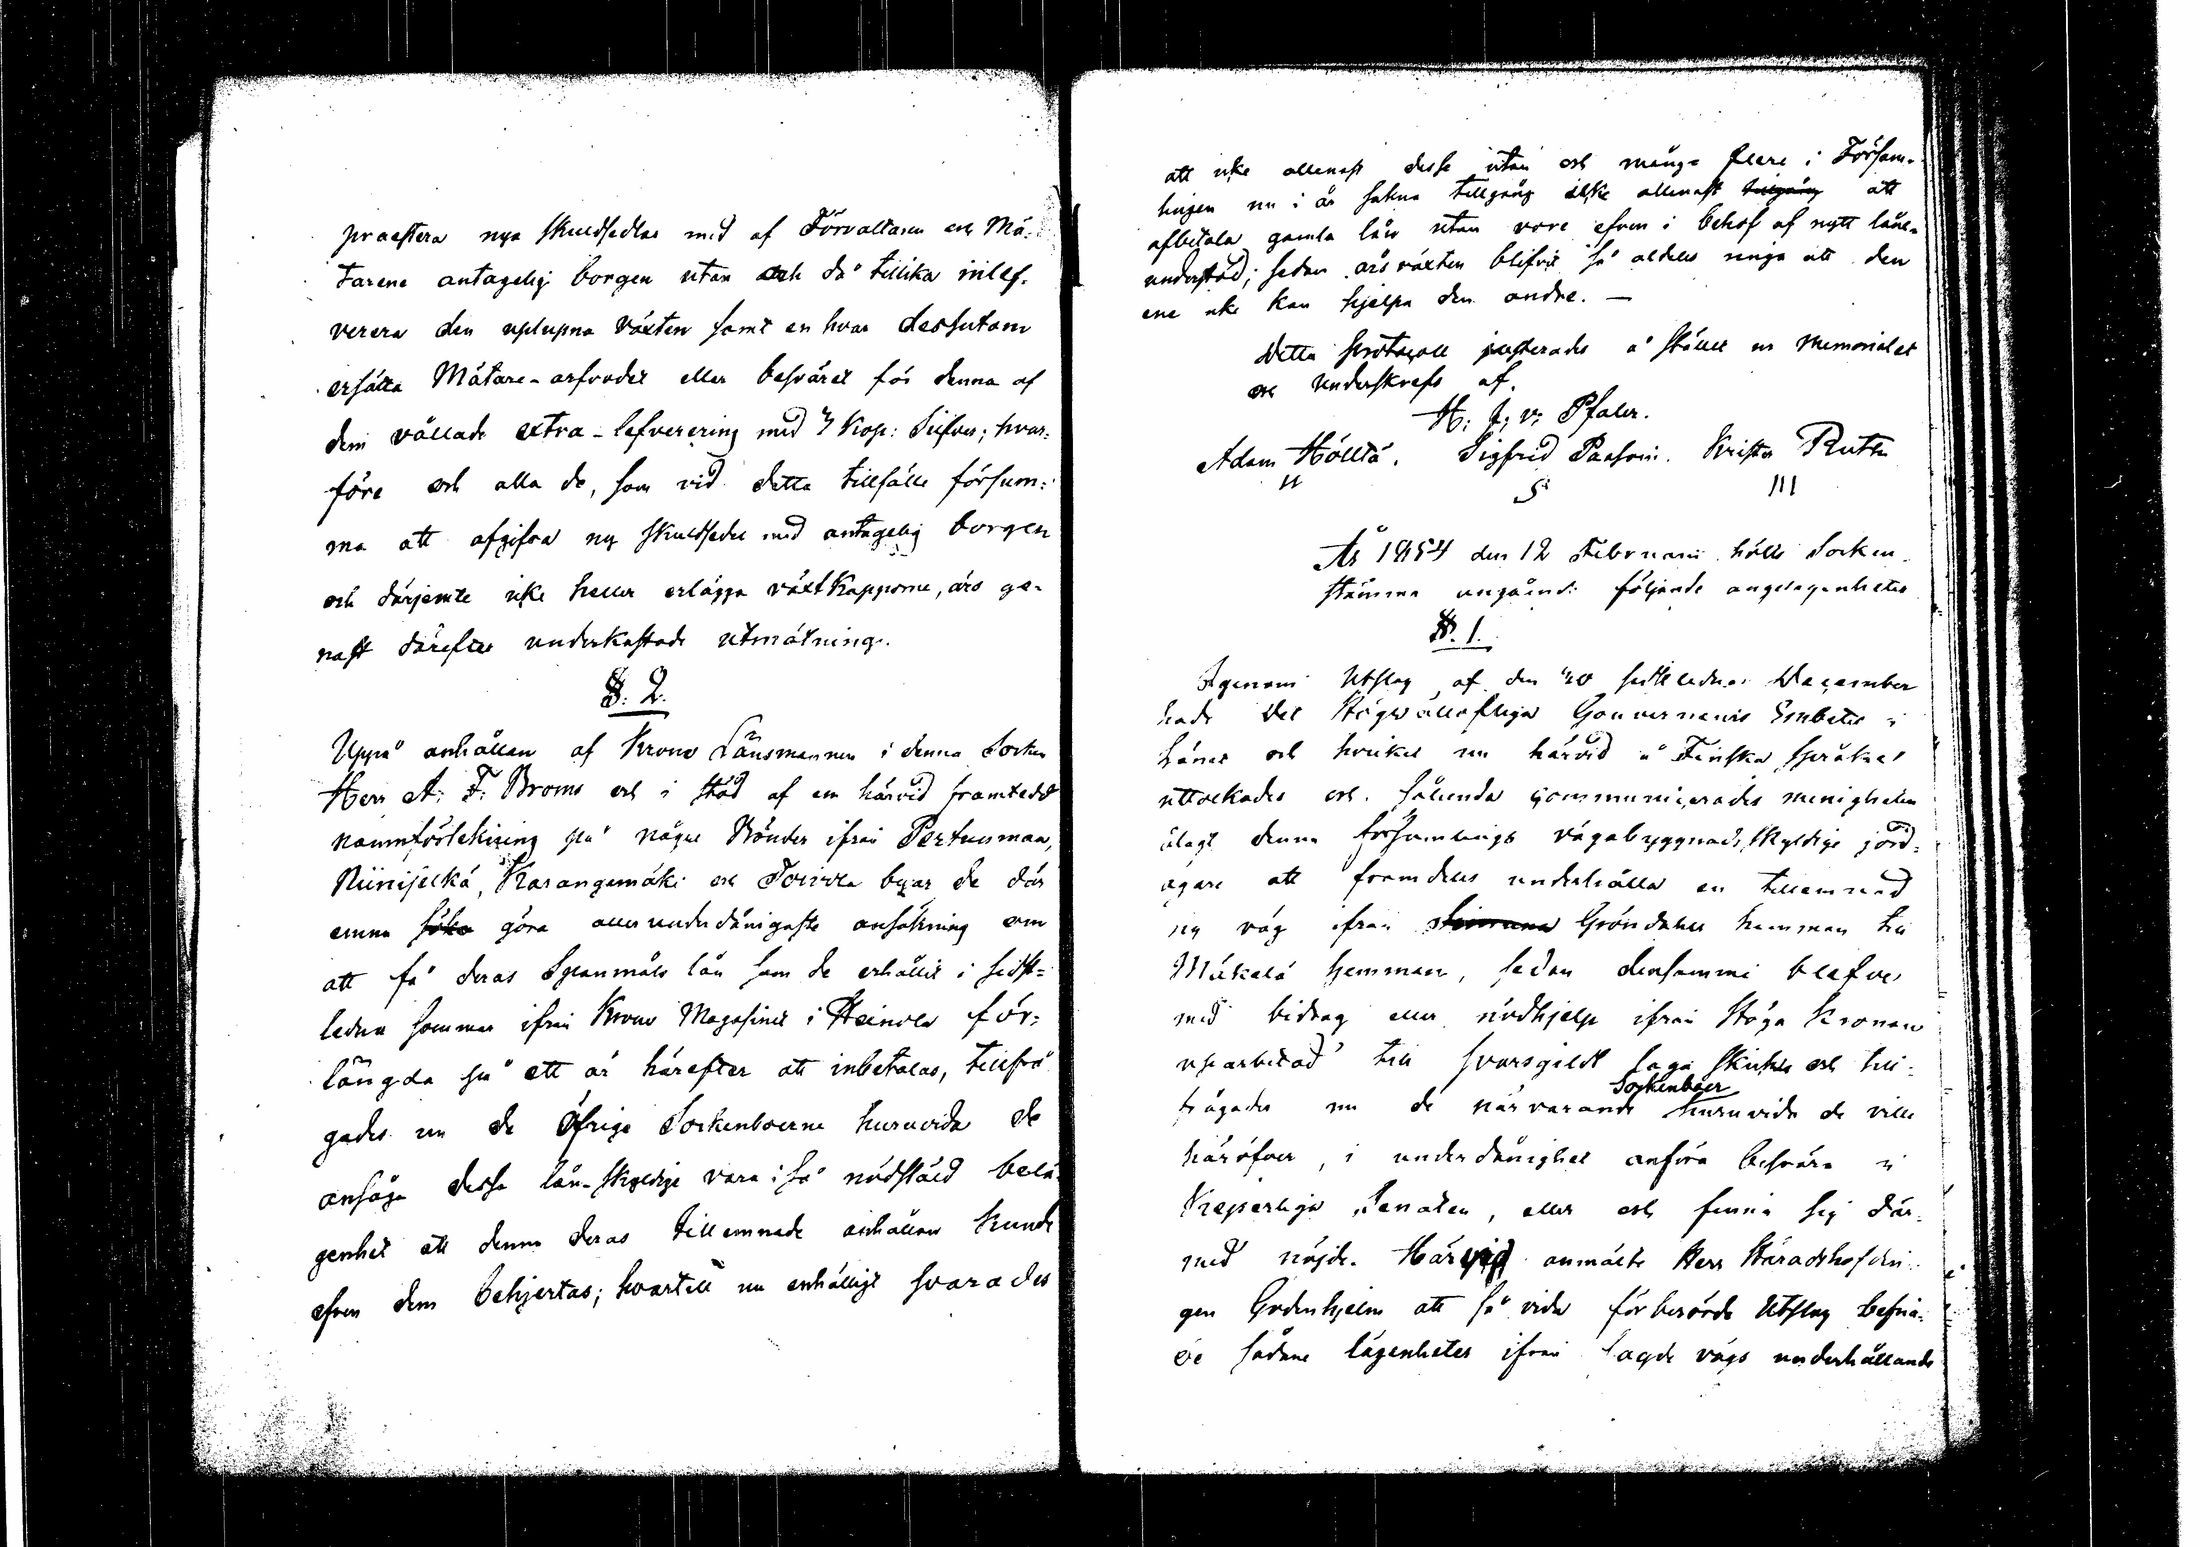 praestera nya skuldsedlar med af Förvaltaren och Mä-
tarene antagelig borgen utan och då tillika inlef-
verera den uplupna växten samt en hvar dessutom
ersätta Mätare-arfvodet eller besväret för denna af
dem vållade extra-lefverering med 4 Kop: Silfver; hvar-
före och alla de, som vid detta tillfälle försum-
ma att afgifva ny skuldsedel med antagelig borgen
och därjemte icke heller erlägga växtkapporne, äro ge-
nast därefter underkastade utmätning.
§. 2.
Uppå anhållan af Krono Länsmannen i denna Socken
Herr A: F: Broms och i stöd af en härvid framtedd
namnförtekning på någre Bönder ifrån Pertunmaa,
Niinijelkä, Karangamäki och Toivola byar de där
emna söka göra allerunderdånigaste ansökning om
att få deras Spanmåls lån som de erhållit i sidst-
ledna sommar ifrån Krono Magasinet i Heinola för-
längda på ett år härefter att inbetalas, tillfrå-
gades nu de öfrige Sockenboerne huruvida de
ansåge desse lån-skyldige vara i så nödstäld belä-
genhet att denna deras tillemnade anhållan kunde
äfven dem behjertas; hvartill nu enhälligt svarades
att icke allenast desse utan och många flere i Försam-
lingen nu i år sakna tillgång icke allenast tillgång att
afbetala gamla lån utan vore äfven i behof af nytt låne-
understöd; sedan årsväxten blifvit så aldeles ringa att den
ene icke kan hjelpa den andre. —
Detta Protocoll justerades å stället ur Memorialet
och underskrefs af.
H: J: v: Pfaler.
Adam Hölltä. Sigfrid Paasoin. Krister Ruth
År 1854 den 12 Februarii hölls Socken-
stämma angående följande angelägenheter
§. 1.
Igenom Utslag af den 20 sidstledne December
hade Det Högvällofliga Gouvernems Embetet i
Länet och hvilket nu härvid å Finska Språket
uttolkades och sålunda communicerades menigheten
ålagt denna församlings vägabyggnads skyldige jord-
ägare att framdeles underhålla en tillemnad
ny väg ifrån Gröndahls hemman till
Mäkelä hemman, sedan densamma blefve
med bidrag eller nödhjelp ifrån Höga Kronan
uparbetad till svarsgildt laga skick och till-
frågades nu de närvarande Sockenboer huruvida de ville
häröfver, i underdånighet anföra besvär i
Kejserliga Senaten, eller och finna sig där-
med nöjde. Härvid anmälte Herr Häradshöfdin-
gen Godenhjelm att så vida förberörde Utslag befria-
de sådane lägenheter ifrån sagde vägs underhållande